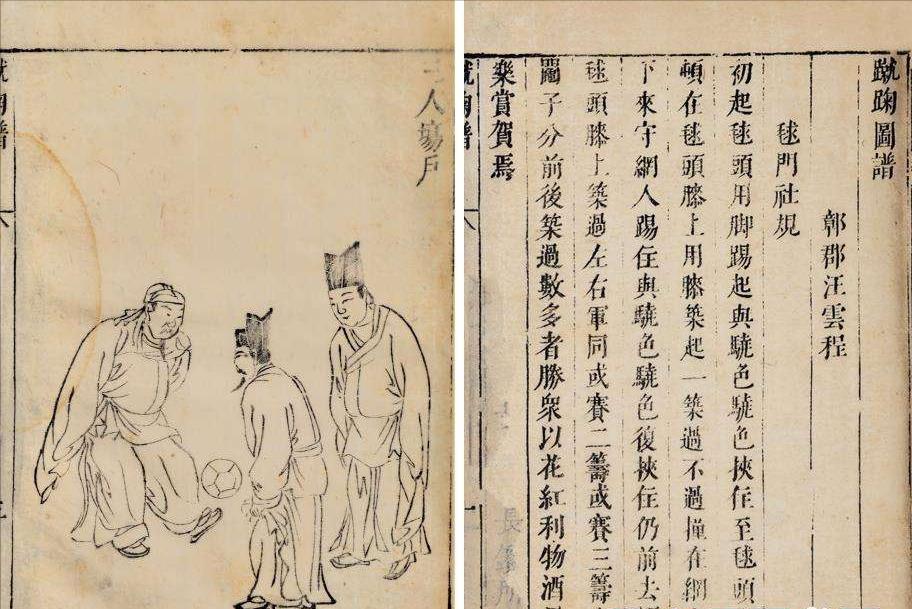 蹴踘圖譜
鄣郡汪雲程
毬門社規
初起毬頭用脚踢起與驍色驍色挾住至毬頭
頓在毬頭膝上用膝築起一築過不過撞在網
下來守網人踢住與驍色驍色復挾住仍前去
毬頭膝上築過左右軍同或賽二籌或賽三籌
鬮子分前後築過數多者勝衆以花紅利物酒
樂賞賀焉
三人塲戶